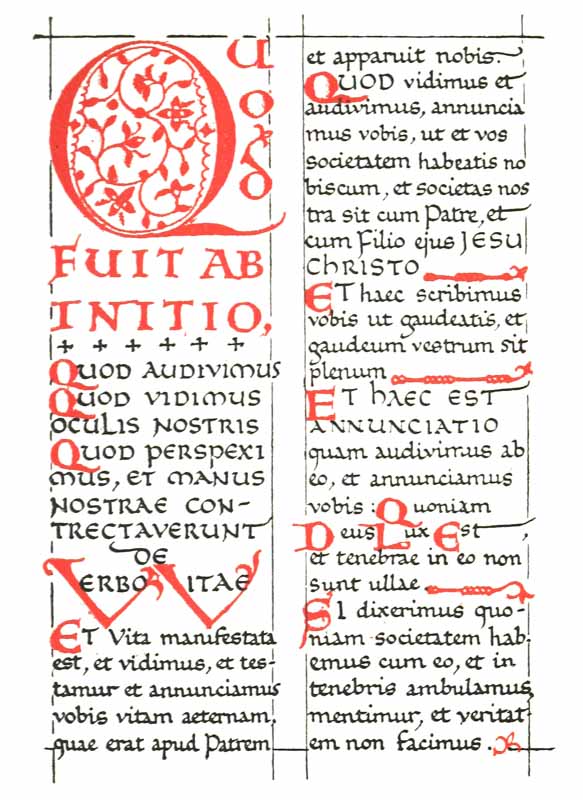 QUOD
FUIT AB
INITIO,
QUOD AUDIVIMUS
QUOD VIDIMUS
OCULIS NOSTRIS
QUOD PERSPEXI
MUS, ET MANUS
NOSTRAE CON-
TRECTAVERUNT
DE
VERBO VITAE
ET Vita manifestata
est, et vidimus, et tes-
tamur et annunciamus
vobis vitam aeternam,
quae erat apud Patrem
et apparuit nobis.
QUOD vidimus et
audivimus, annuncia
mus vobis, ut et vos
societatem habeatis no
biscum, et societas nos
tra sit cum Patre, et
cum Filio ejus JESU
CHRISTO
ET haec scribimus
vobis ut gaudeatis, et
gaudeum vestrum sit
plenum
ET HAEC EST
ANNUNCIATIO
quam audivimus ab
eo, et annunciamus
vobis : Quoniam
Deus Lux Est,
et tenebrae in eo non
sunt ullae
SI dixerimus quo-
niam societatem hab-
emus cum eo, et in
tenebris ambulamus,
mentimur, et veritat-
em non facimus.